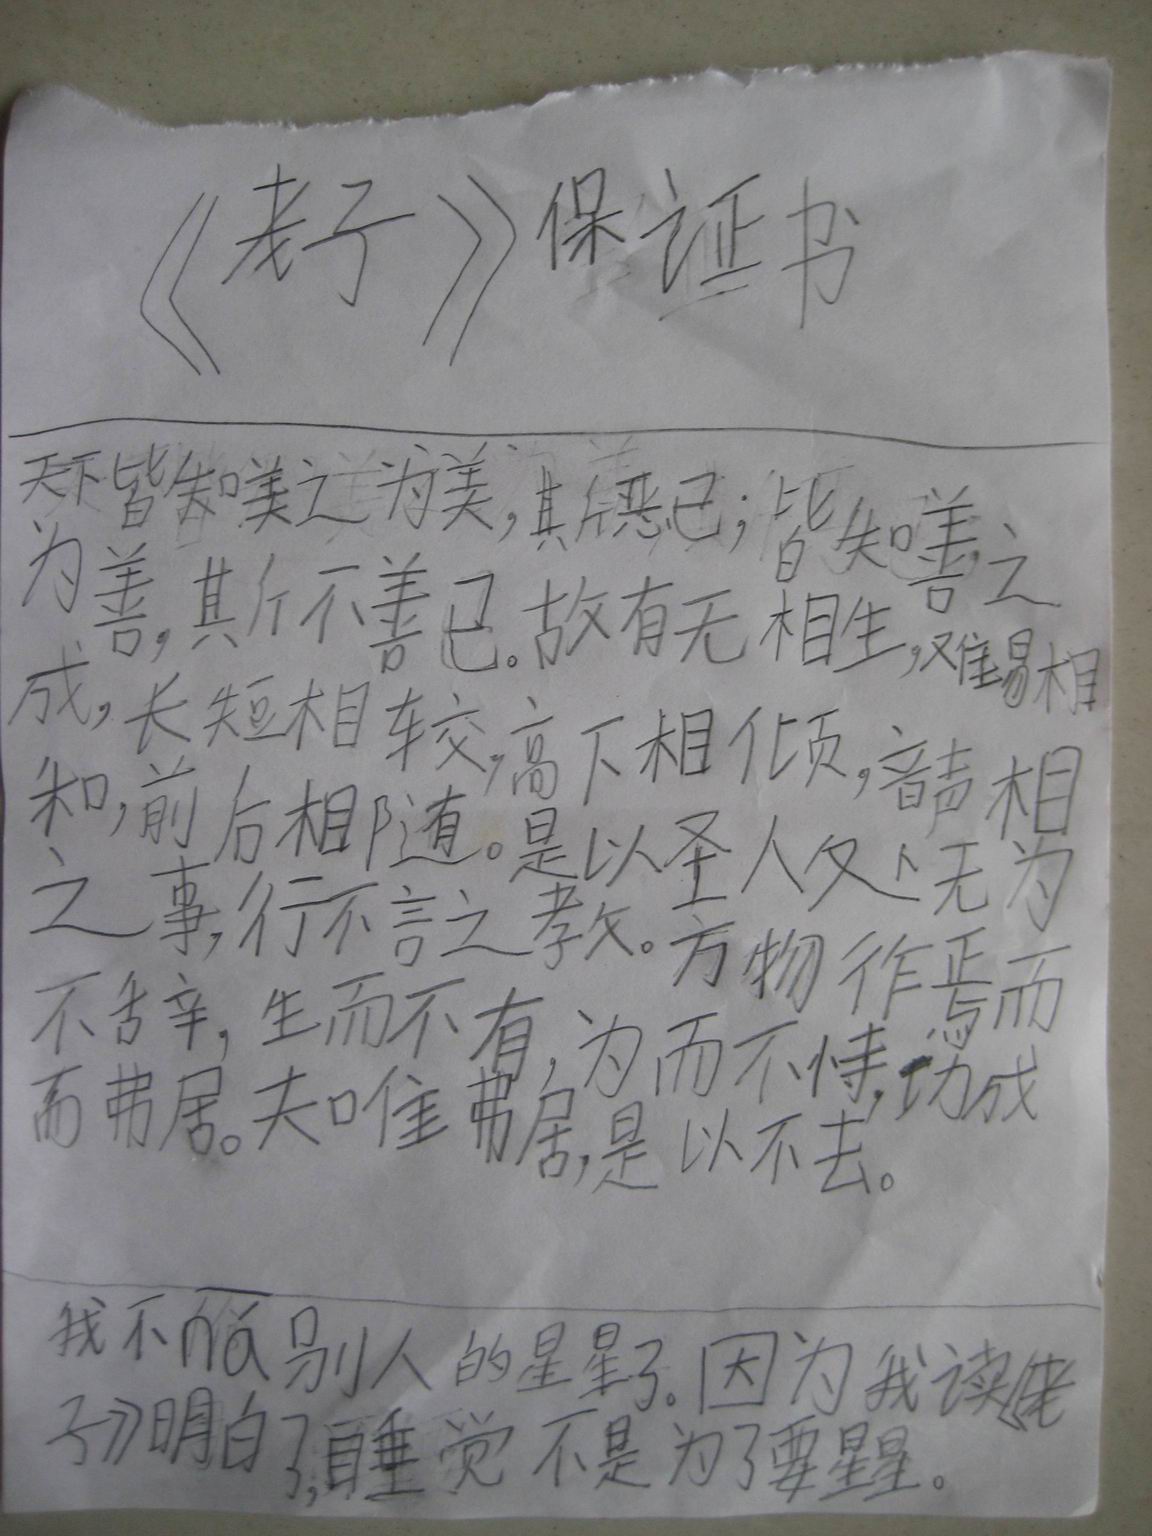 《老子》保证书
天下皆知美之为美，其斯恶已；皆知善之
为善，其斯不善已。故有无相生，难易相
成，长短相较，高下相倾，音声相
和，前后相随。是以圣人处无为
之事，行不言之教。万物作焉而
不辞，生而不有，为而不恃，功成
而弗居。夫唯弗居，是以不去。
我不 别人的星星了。因为我读《老
子》明白了，睡觉不是为了要星星。